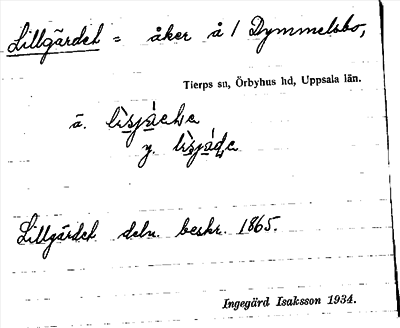 Lillgärdet = åker å / Dymmelsbo,
Tierps sn, Örbyhus hd, Uppsala län.
ä.
y.
Lillgärdet deln. beskr. 1865.
Ingegärd Isaksson 1934.